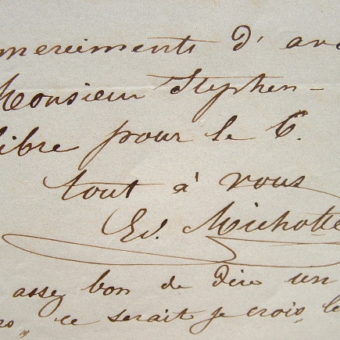 merciments d'av
Monsieur Stephen -
libre pour le 6.
tout à vous
Ed. Michotte
assez bon de dire un
ce serait je crois le